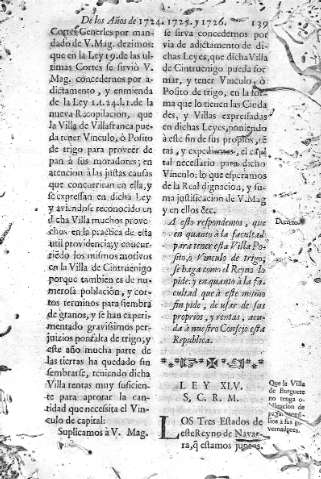 De los Años de 1724. 1725. y 1726. 139
Cortes Generles por man-
dado de V. Mag. dezimos:
que en la Ley 19. de las ul-
timas Cortes se sirviò V.
Mag. concedernos por a-
dictamento, y enmienda
de la Ley 1. t. 24. l. 1. de la
nueva Recopilacion, que
la Villa de Villafranca pue-
da tener Vinculo, ò Posito
de trigo para proveer de
pan à sus moradores; en
atencion à las justas causas
que concurrian en ella, y
se expressan en dicha Ley
y aviendose reconocido en
dicha Villa muchos prove-
chos en la practica de esta
util providencia; y concur-
riẽdo los mismos motivos
en la Villa de Cintruenigo
porque tambien es de nu-
merosa poblacion, y cor-
tos terminos para siembra
de granos, y se han experi-
mentado gravisimos per-
juizios por falta de trigo, y
este año mucha parte de
las tierras ha quedado sin
sembrarse, teniendo dicha
Villa rentas muy suficien-
te para aprotar la can-
tidad que necesita el Vin-
culo de capital:
Suplicamos à V. Mag.
se sirva concedernos por
via de adictamento de di-
chas Leyes, que dicha Villa
de Cintruenigo pueda for-
mar, y tener Vinculo, ò
Posito de trigo, en la for-
ma que lo tienen las Ciuda-
des, y Villas expressadas
en dichas Leyes, poniendo
à este fin de sus propios,
y expedientes, el capi-
tal necesario para dicho
Vinculo: lo que esperamos
de la Real dignacion, y su-
ma justificacion de V. Mag
y en ellos &c.
A esto respondemos, que
en quanto à la facultad
para tener esta Villa Po-
sito, ò Vinculo de trigo,
se haga como el Reyno lo
pide; y en quanto à la fa-
cultad que à este mismo
fin pide, de usar de sus
proprios, y rentas, acu-
da à nuestro Consejo esta
Republica.
Decreto.
LEY XLV.
S. C. R. M.
LOS Tres Estados de
este Reyno de Navar-
ra, q̃ estamos juntos,
Que la Villa
de Burguete
no tenga o-
bligacion de